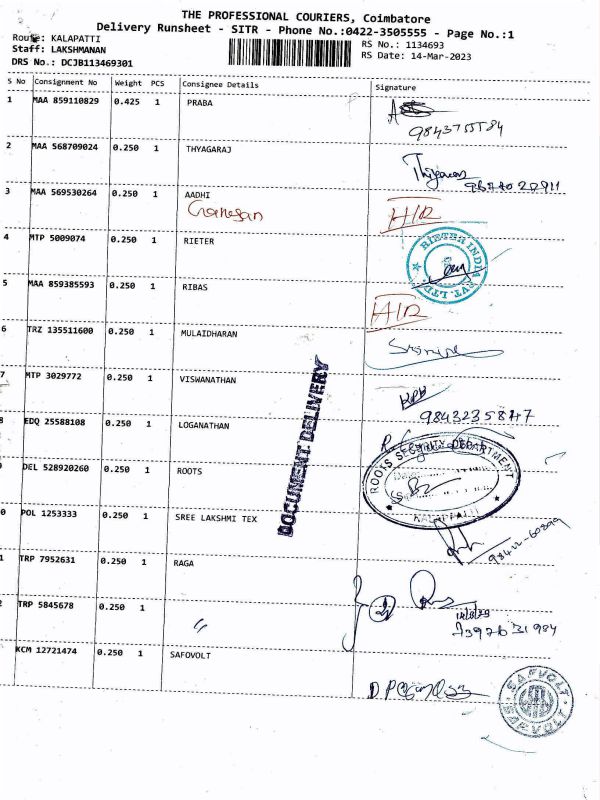 THE PROFESSIONAL COURIERS, Coimbatore
Delivery Runsheet - SITR - Phone No.:0422-3505555 - Page No.:1
Route: KALAPATTI
Staff: LAKSHMANAN
DRS No.: DCJB113469301
RS No.: 1134693
RS Date: 14-Mar-2023
S No Consignment No Weight PCS Consignee Details Signature
1 MAA 859110829 0.425 1 PRABA
2 MAA 568709024 0.250 1 THYAGARAJ
3 MAA 569530264 0.250 1 AADHI
Ganesan H/R
4 MTP 5009074 0.250 1 RIETER
RIETER INDIA PVT. LTD.
5 MAA 859385593 0.250 1 RIBAS
H/R
6 TRZ 135511600 0.250 1 MULAIDHARAN
7 MTP 3029772 0.250 1 VISWANATHAN
9843235847
8 EDQ 25588108 0.250 1 LOGANATHAN
DOCUMENT DELIVERY
DEL 528920260 0.250 1 ROOTS
ROOTS SECURITY DEPARTMENT
0 POL 1253333 0.250 1 SREE LAKSHMI TEX
1 TRP 7952631 0.250 1 RAGA
2 TRP 5845678 0.250 1 "
7397631984
KCM 12721474 0.250 1 SAFOVOLT
SAFVOLT SAFVOLT